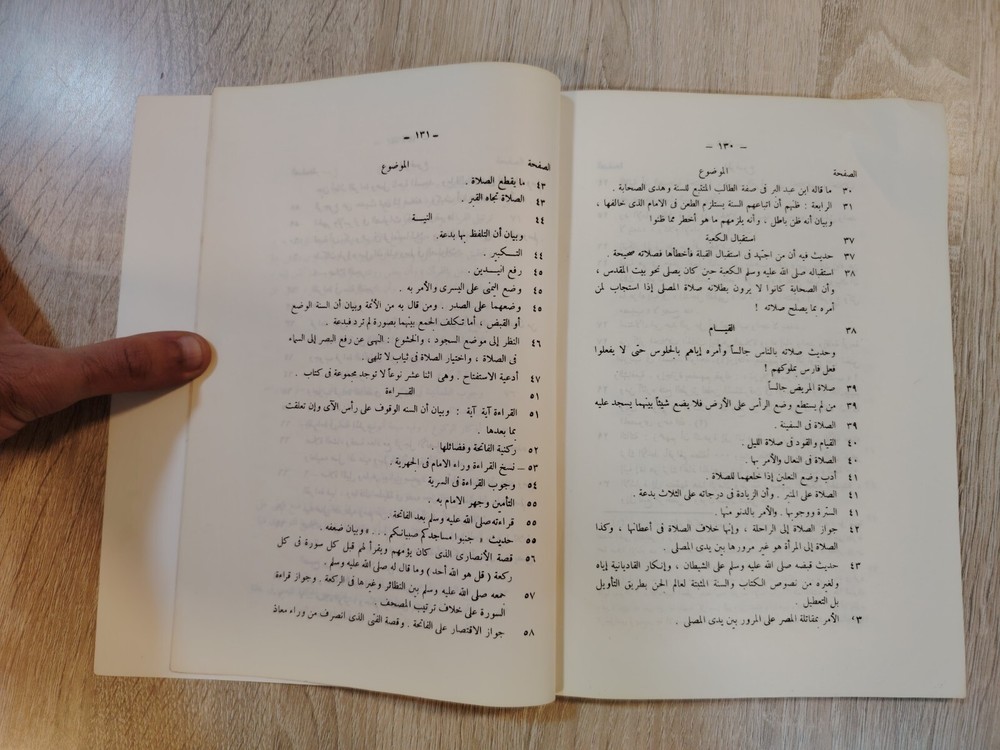 – ١٣٠ –
الصفحة الموضوع
٣٠ ما قاله ابن عبد البر فى صفة الطالب المتقنع للسنة وهدى الصحابة .
٣١ الرابعة : ظنهم أن اتباعهم السنة يستلزم الطعن فى الامام الذى خالفها ،
وبيان أنه ظن باطل ، وأنه يلزمهم ما هو أخطر مما ظنوا
٣٧ استقبال الكعبة
٣٧ حديث فيه أن من اجتهد فى استقبال القبلة فأخطأها فصلاته صحيحة .
٣٨ استقباله صلى الله عليه وسلم الكعبة حين كان يصلى نحو بيت المقدس ،
وأن الصحابة كانوا لا يرون بطلانه صلاة المصلى إذا استجاب لمن
أمره بما يصلح صلاته !
٣٨ القيـام
وحديث صلاته بالناس جالساً وأمره إياهم بالجلوس حتى لا يفعلوا
فعل فارس بملوكهم !
٣٩ صلاة المريض جالساً
٣٩ من لم يستطع وضع الرأس على الأرض فلا يضع شيئاً بينهما يسجد عليه
٣٩ الصلاة فى السفينة .
٤٠ القيام والقود فى صلاة الليل .
٤٠ الصلاة فى النعال والأمر بها .
٤١ أدب وضع النعلين إذا خلعهما للصلاة
٤١ الصلاة على المنبر . وأن الزيادة فى درجاته على الثلاث بدعة .
٤١ السترة ووجوبها . والأمر بالدنو منها .
٤٢ جواز الصلاة إلى الراحلة ، وإنها خلاف الصلاة فى أعطانها ، وكذا
الصلاة إلى المرأة هو غير مرورها بين يدى المصلى .
٤٣ حديث قبضه صلى الله عليه وسلم على الشيطان ، وإنكار القاديانية إياه
ولغيره من نصوص الكتاب والسنة المثبتة لعالم الجن بطريق التأويل
بل التعطيل .
الأمر بمقاتلة المصر على المرور بين يدى المصلى .
– ١٣١ –
الصفحة الموضوع
٤٣ ما يقطع الصلاة .
٤٣ الصلاة تجاه القبر .
٤٤ النيـــة
وبيان أن التلفظ بها بدعة.
٤٤ التـــكبير .
٤٥ رفع اليـدين .
٤٥ وضع اليمنى على اليسرى والأمر به .
٤٥ وضعهما على الصدر . ومن قال به من الأئمة وبيان أن السنة الوضع
أو القبض ، أما تتكلف الجمع بينهما بصورة لم ترد فبدعة .
٤٦ النظر إلى موضع السجود ، والخشوع : النهى عن رفع البصر إلى السماء
فى الصلاة ، واختيار الصلاة فى ثياب لا تلهى .
٤٧ أدعية الاستفتاح . وهى اثنا عشر نوعاً لا توجد مجموعة فى كتاب .
٥١ القـــراءة
٥١ القراءة آية آية : وبيان أن السنه الوقوف على رأس الآى وإن تعلقت
بما بعدها .
٥٢ ركنية الفاتحة وفضائلها .
٥٣ – نسخ القراءة وراء الامام فى الجهرية .
٥٤ وجوب القراءة فى السرية
٥٥ التأمين وجهر الامام به .
٥٥ قراءته صلى الله عليه وسلم بعد الفاتحة .
٥٥ حديث « جنبوا مساجدكم صبيانكم . . . » وبيان ضعفه .
٥٦ قصة الأنصارى الذى كان يؤمهم ويقرأ لهم قبل كل سورة فى كل
ركعة ( قل هو الله أحد ) وما قال له صلى الله عليه وسلم .
٥٧ جمعه صلى الله عليه وسلم بين النظائر وغيرها فى الركعة . وجواز قراءة
السورة على خلاف ترتيب المصحف .
٥٨ جواز الاقتصار على الفاتحة . وقصة الفتى الذى انصرف من وراء معاذ